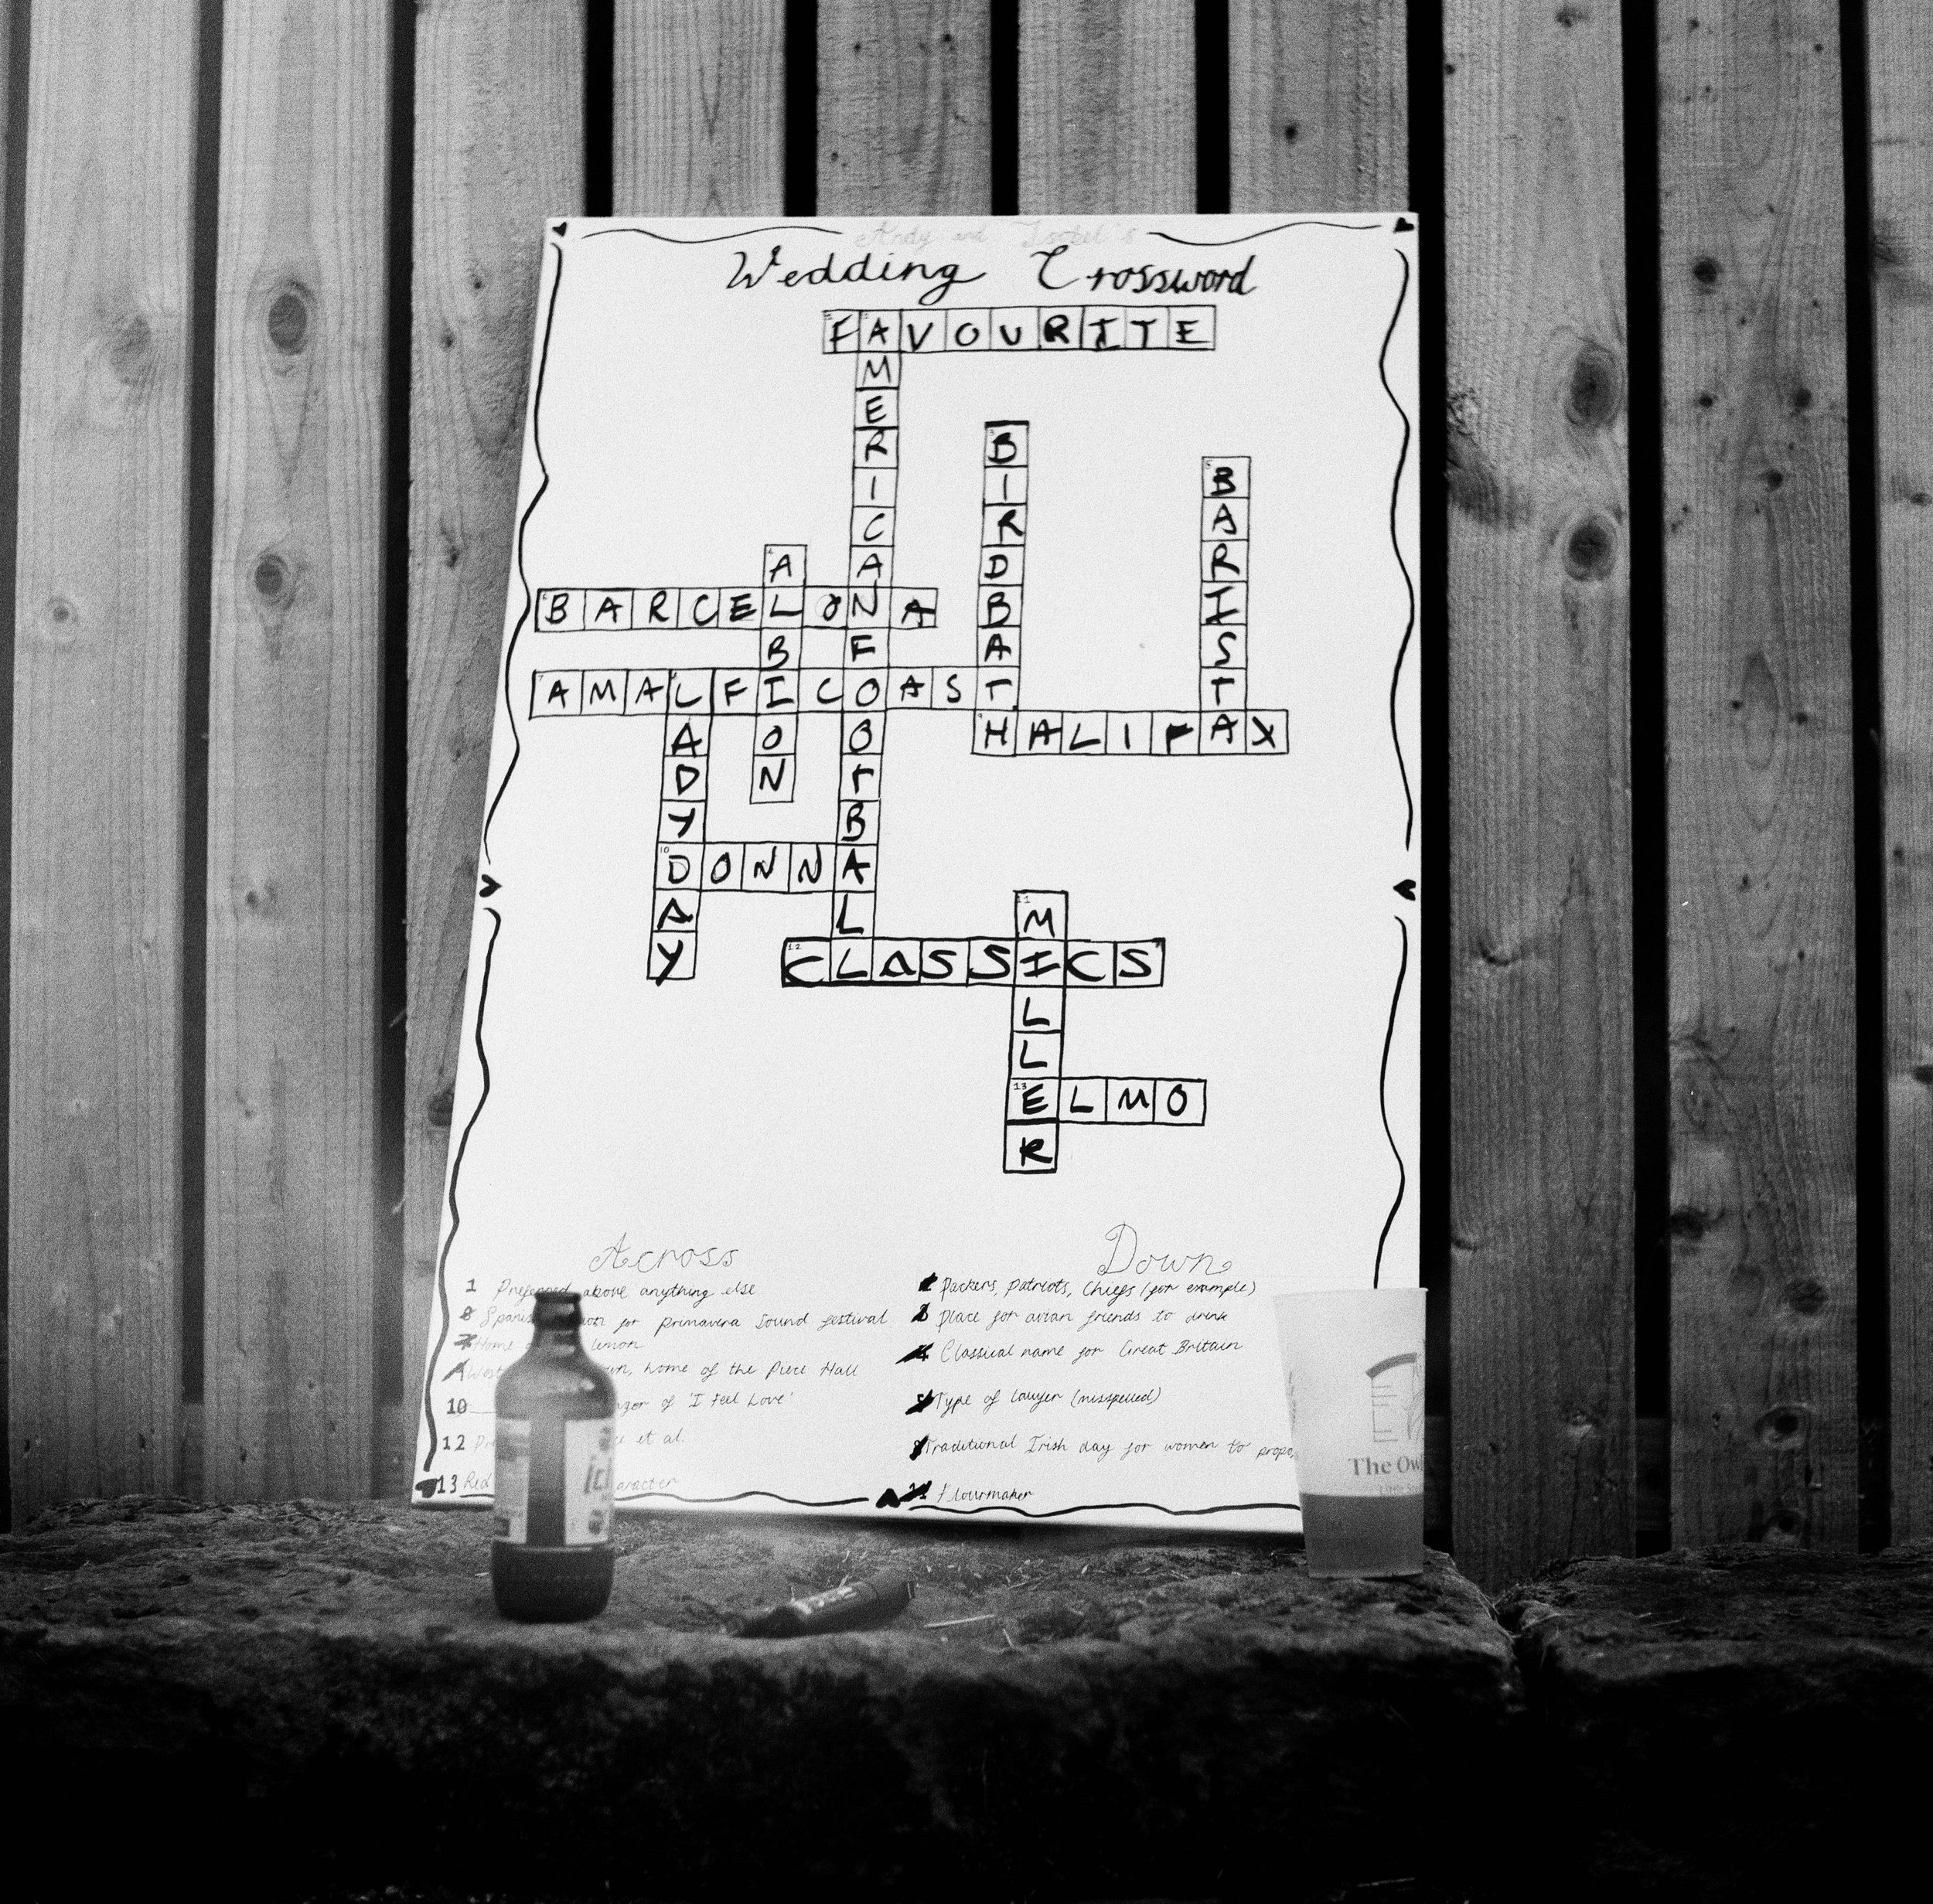 Andy and Isobel's
Wedding Crossword
FAVOURITE
AMERICANFOOTBALL
BIRDBATH
BARISTA
ALBION
BARCELONA
AMALFICOAST
LADYDAY
HALIFAX
DONNA
MILLER
CLASSICS
ELMO
Across
1 Preferred above anything else
for primavera Sound festival
Home lemon
home of the Piece Hall
10 of 'I Feel Love'
12 et al.
13 Red
Down
Packers, Patriots, Chiefs (for example)
place for avian friends to drink
4 Classical name for Great Britain
5 Type of lawyer (misspelled)
Traditional Irish day for women to
11 Flourmaker
The